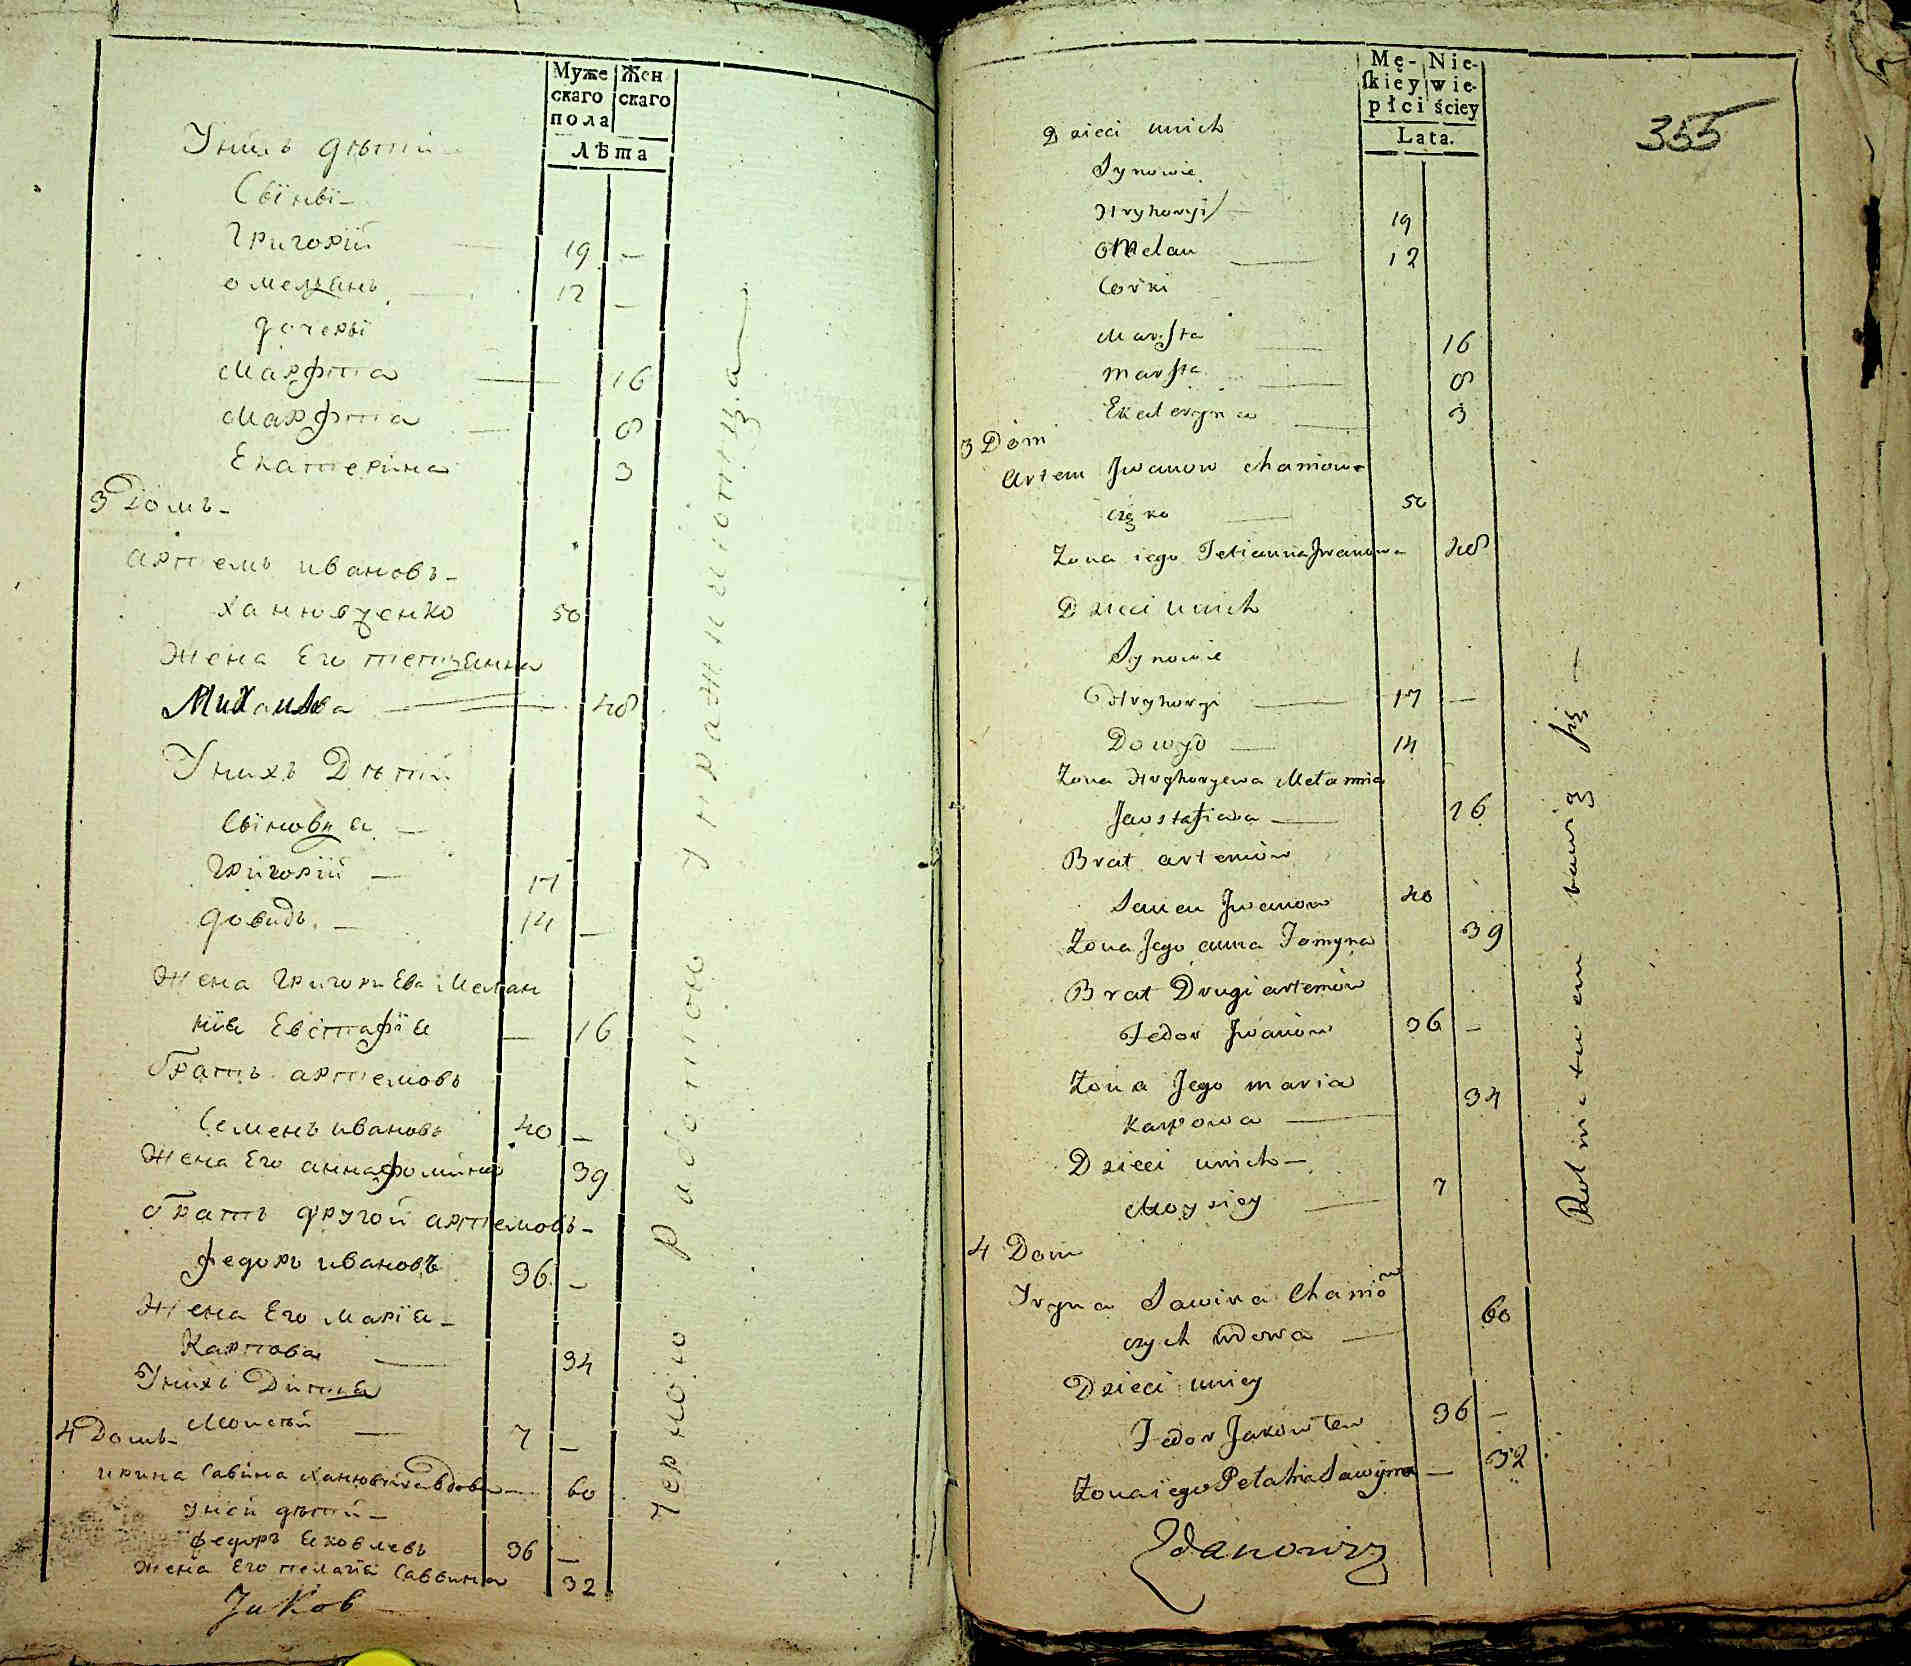 Муже
скаго
пола
Жен
скаго
Лѣта
Унихъ дѣтий
Сыны
Григорий 19 —
Омельянъ 12 —
дочеры
Марфта 16
Марфта 8
Екатерина 3
3 Домъ
Артемъ ивановъ
ханювченко 50
Жена Его тетянна
Михайлова 48
Унихъ Дѣтий
Сыновя
Григорий 17
довидъ 14 —
Жена Григориева Мелан
ния Евстафия — 16
Братъ артемовъ
Семенъ ивановъ 40 —
Жена Его анна фомина 39
Братъ другой артемовъ
федоръ ивановъ 36 —
Жена Его Мария
Карпова 34
Унихъ Дитя
Моисей 7 —
4 Домъ
ирина Савина Ханювичка вдова 60
Уней дѣтий
федоръ Яковлевъ 36 —
Жена Его пелагия Саввина 32
Яков
черною работою упражняютца
Mę-
skiey
płci
Nie-
wie-
ściey
Lata.
355
Dzieci unich
Synowie
Hryhoryi 19
Omelan 12
Corki
Marfta 16
Marfta 8
Ekateryna 3
3 Dom
Artem Jwanow Chaniow
częko 50
Zona iego Tetianna Jwanowa 48
Dzieci unich
Synowie
Hryhoryi 17 —
Dowyd 14
Zona Hryhoryewa Melannia
Jawstafiewa 16
Brat artemów
Semen Jwanow 40
Zona Jego anna Fomyna 39
Brat Drugi artemów
Fedor Jwanów 36 —
Zona Jego maria
Karpowa 34
Dzieci unich
Moysiey 7
4 Dom
Iryna Sawina Chanió
czych wdowa 60
Dzieci uniey
Fedor Jakowlew 36 —
Zona iego Pelahia Sawyna 32
Zdanowicz
Rolnictwem bawią się